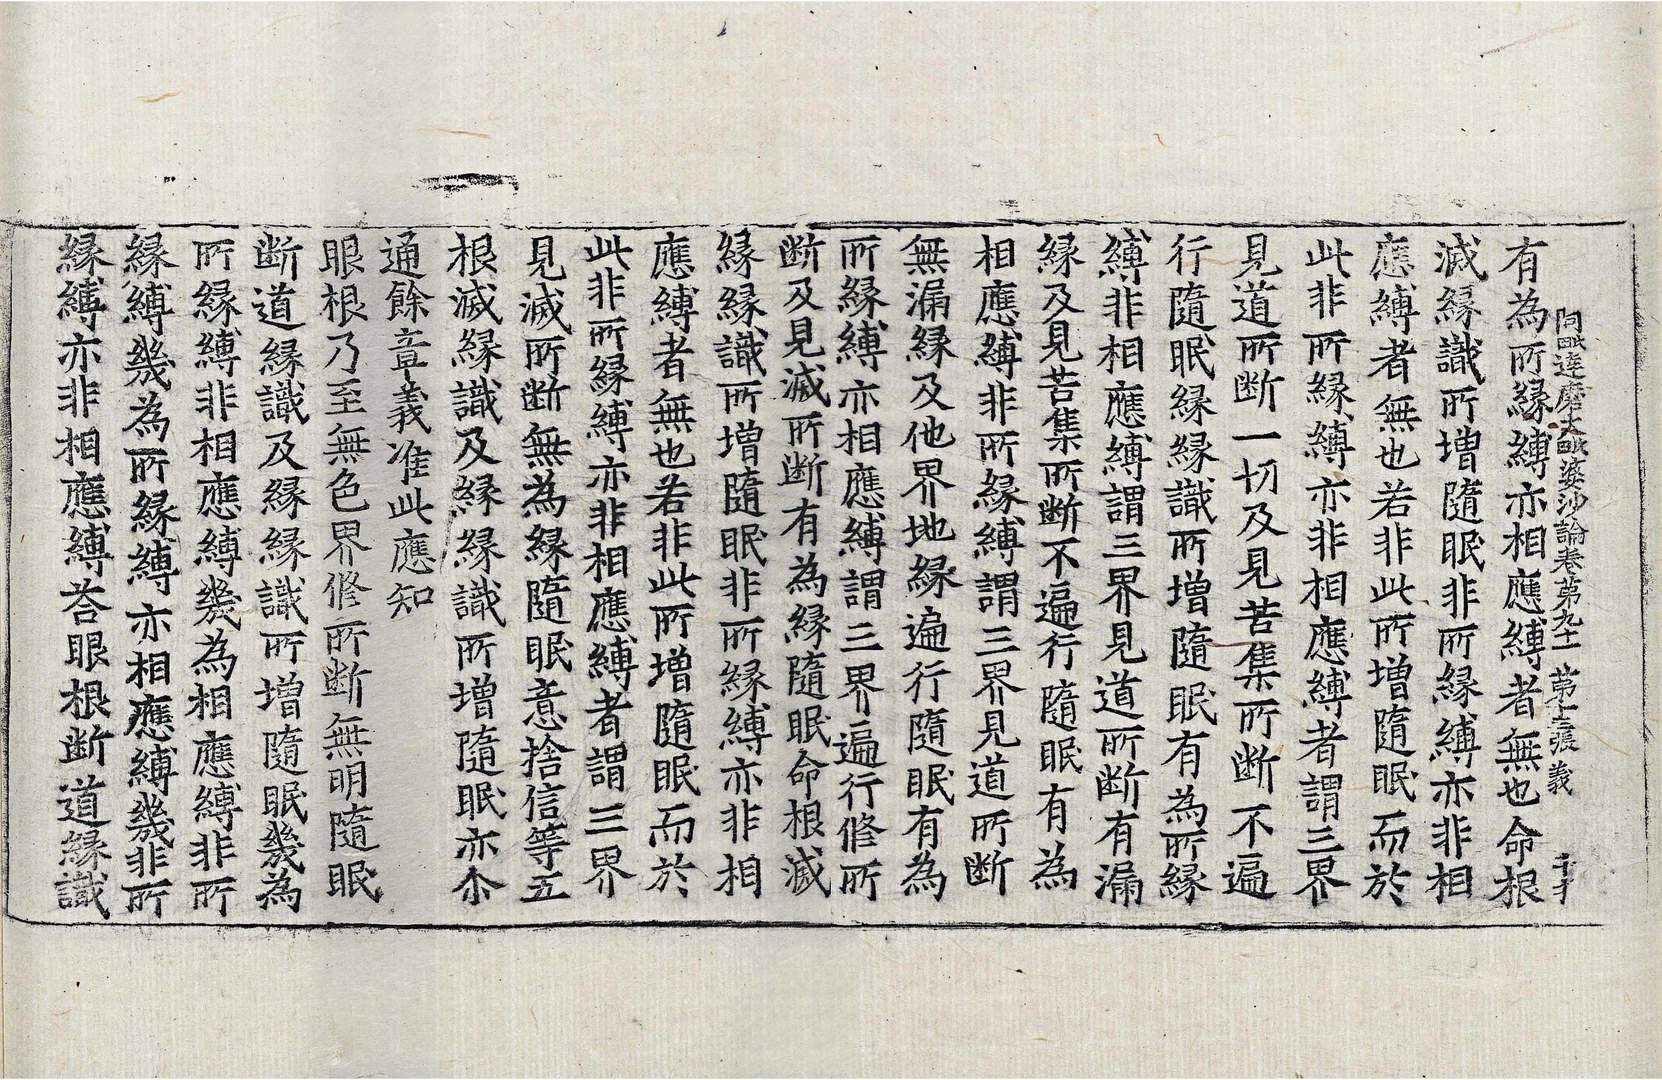 阿毗達磨大毗婆沙論卷第九十 第十三張 義
有為所縁縛亦相應縛者無也命根
滅縁識所增隨眠非所縁縛亦非相
應縛者無也若非此所增隨眠而於
此非所縁縛亦非相應縛者謂三界
見道所斷一切及見苦集所斷不遍
行隨眠縁縁識所增隨眠有為所縁
縛非相應縛謂三界見道所斷有漏
縁及見苦集所斷不遍行隨眠有為
相應縛非所縁縛謂三界見道所斷
無漏縁及他界地縁遍行隨眠有為
所縁縛亦相應縛謂三界遍行修所
斷及見滅所斷有為縁隨眠命根滅
縁縁識所增隨眠非所縁縛亦非相
應縛者無也若非此所增隨眠而於
此非所縁縛亦非相應縛者謂三界
見滅所斷無為縁隨眠意捨信等五
根滅縁識及縁縁識所增隨眠亦尒
通餘章義准此應知
眼根乃至無色界修所斷無明隨眠
斷道縁識及縁縁識所增隨眠幾為
所縁縛非相應縛幾為相應縛非所
縁縛幾為所縁縛亦相應縛幾非所
縁縛亦非相應縛荅眼根斷道縁識